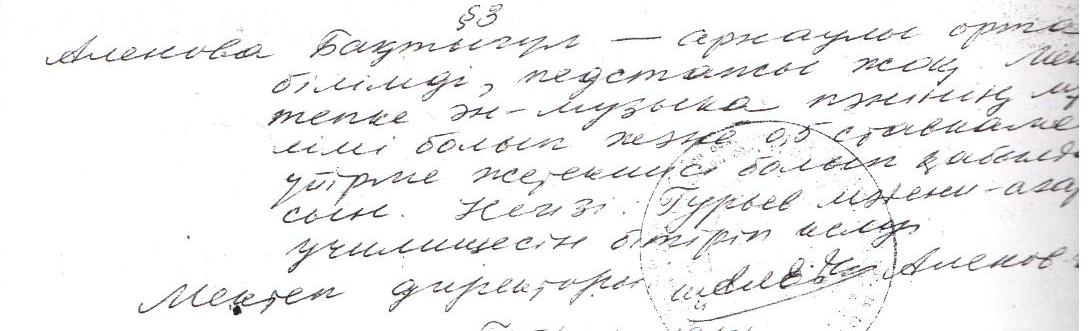 §3
Аленова Бақтыгул — арнаулы орта
білімді, педстажы жоқ мек
тепке ән-музыка пәнінің мұ
лімі болып және 0,5 ставкаме
үйірме жетекшісі болып қабылд
сын. Негізі: Гурьев мәдени-ағар
училищесін бітіріп келуі
Мектеп директоры Аленов